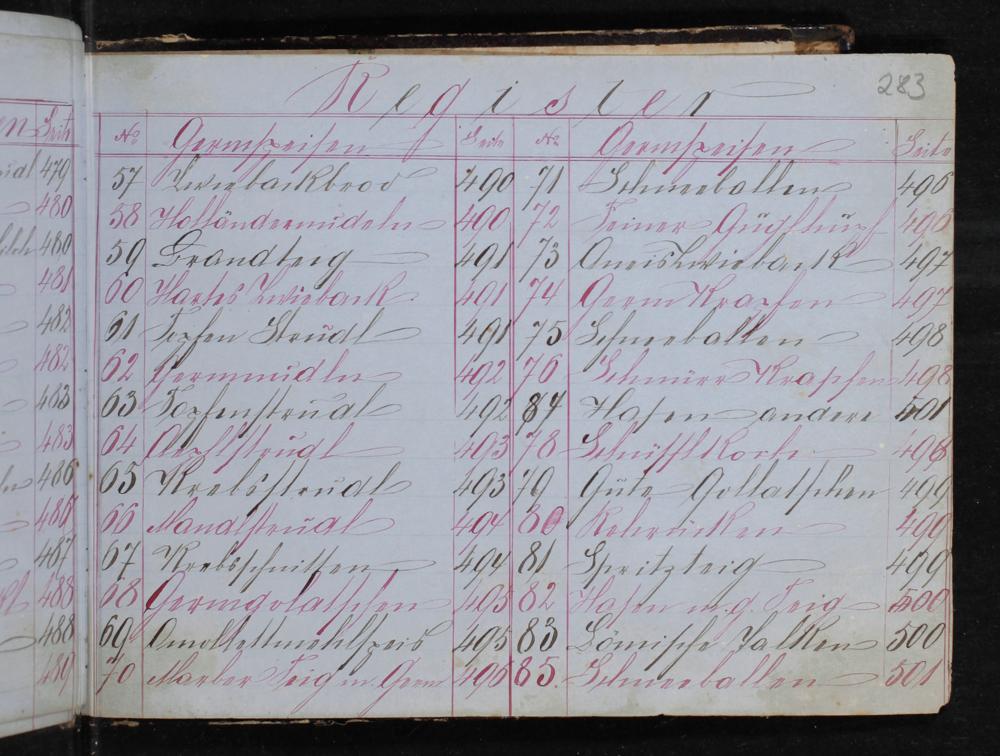 283
Register
No Germspeisen Seite No Germspeisen Seite
479
57 Zwiebackbrod 490 71 Schneeballen 496
480
58 Holländernudeln 490 72 Feiner Guglhupf 496
480
59 Brandteig 491 73 Aneis Zwieback 497
481
60 Hartes Zwieback 491 74 Germ Krapfen 497
482
61 Topfen Strudl 491 75 Schneeballen 498
482
62 Germnudln 492 76 Krapfen 498
483
63 Topfenstrudl 492 84 Hasen andere 501
483
64 Apflstrudl 493 78 498
486
65 Krebsstrudl 493 79 Gute Gollatschen 499
486
66 Mandlstrudl 494 80 Rehrücken 499
487
67 Krebsschnitten 494 81 Spritzteig 499
488
68 Germgolatschen 495 82 Hasen m. g. Teig 500
488
69 Amolettmehlspeis 495 83 Bömische Dalken 500
489
70 Marber Teig m. Germ 496 85. Schneeballen 501